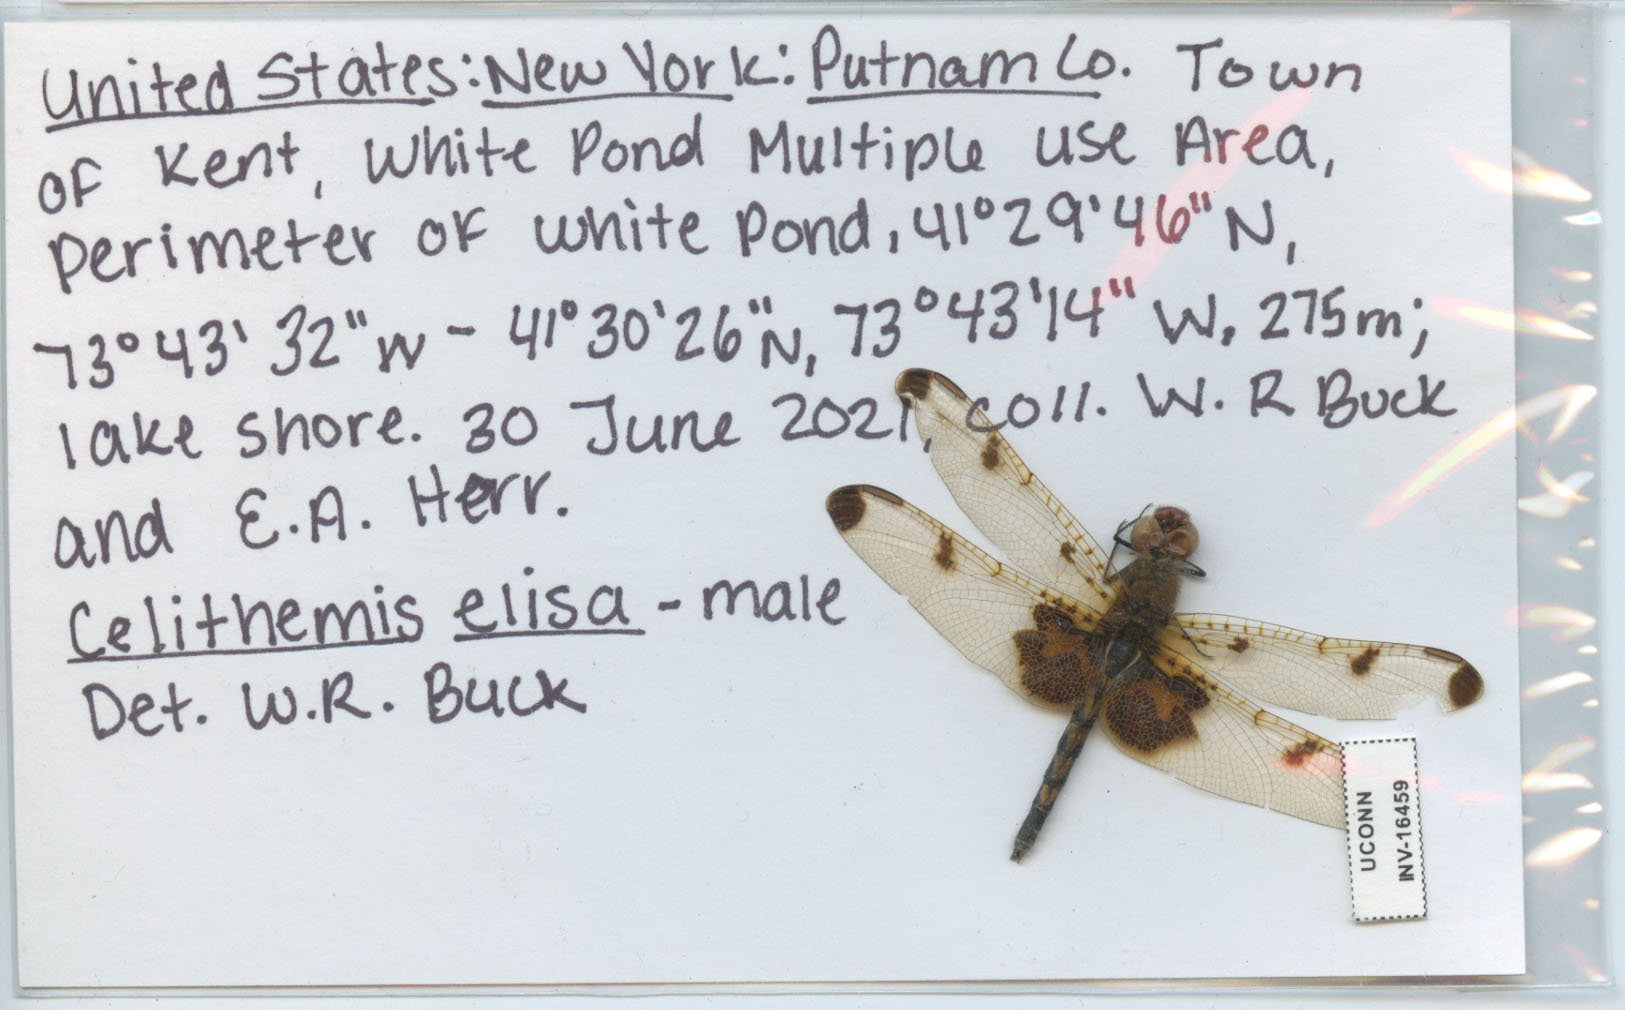 United States: New York: Putnam Co. Town
of Kent, White Pond Multiple Use Area,
perimeter of White Pond, 41°29'46"N,
73°43'32"W - 41°30'26"N, 73°43'14" W, 275m;
lake shore. 30 June 2021, coll. W. R Buck
and E.A. Herr.
Celithemis elisa - male
Det. W.R. Buck
UCONN
INV-16459